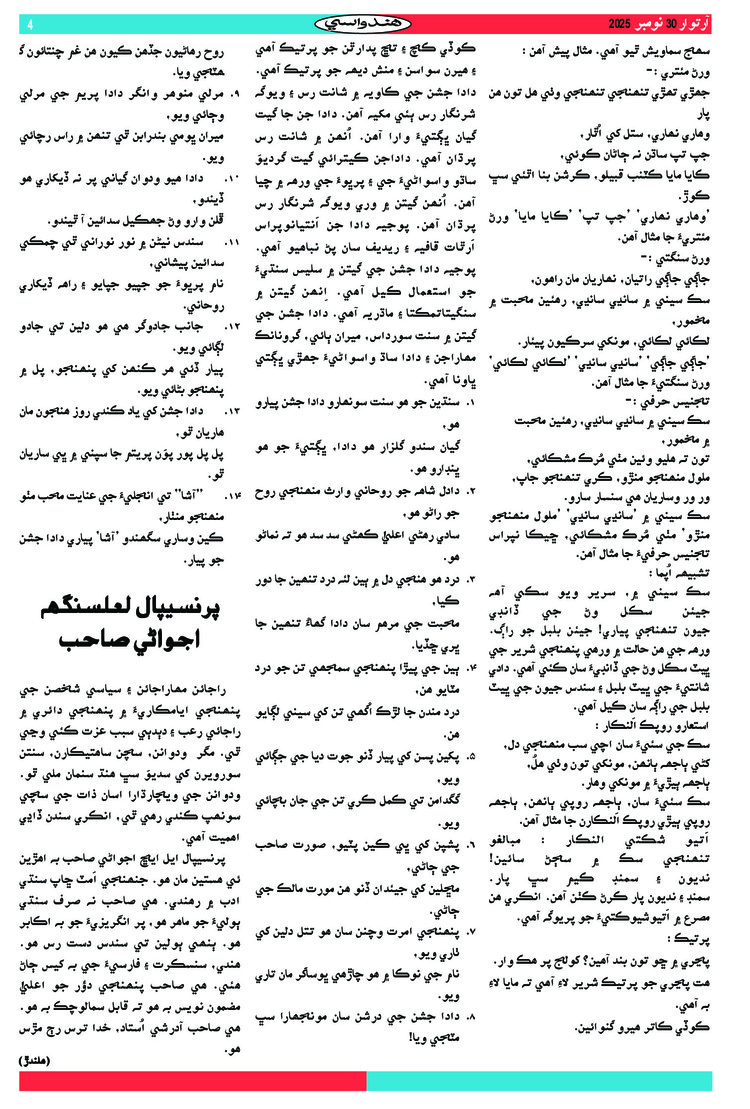 آرتوار 30 نومبر 2025
هندواسي
4
سهڄ سماويش ٿيو آهي. مثال پيش آهن :
ورڻ مئتري :-
جهڙي تهڙي تنهنجي تنهنجي وئي هل تون من
پار
وهاري نهاري، ستل کي اُٿار،
جپ تپ ساڌن نه ڄاڻان ڪوئي،
ڪايا مايا ڪٽنب قبيلو، ڪرشن بنا اٿئي سڀ
ڪوڙ.
'وهاري نهاري' 'جپ تپ' 'ڪايا مايا' ورڻ
مئتريءَ جا مثال آهن.
ورڻ سنگتي :-
جاڳي جاڳي راتيان، نهاريان مان راهون،
سڪ سيني ۾ سانيي سانيي، رهئين محبت ۾
مخمور،
لڪائي لڪائي، مونکي سرڪيون پيئار.
'جاڳي جاڳي' 'سانيي سانيي' 'لڪائي لڪائي'
ورڻ سنگتيءَ جا مثال آهن.
تجنيس حرفي :-
سڪ سيني ۾ سانيي سانيي، رهئين محبت
۾ مخمور،
تون ته هليو وئين مٺي مُرڪ مشڪائي،
ملول منهنجو منڙو، ڪري تنهنجو جاپ،
ور ور وساريان هي سنسار سارو.
سڪ سيني ۾ 'سانيي سانيي' 'ملول منهنجو
منڙو' مٺي مُرڪ مشڪائي، ڇيڪا نپراس
تجنيس حرفيءَ جا مثال آهن.
تشبيهه اُپما :
سڪ سيني ۾، سرير ويو سڪي آهه
جيئن سڪل وڻ جي ڏانڊي
جيون تنهنجي پياري! جيئن بلبل جو راڳ.
ورهه جي هن حالت ۾ ورهي پنهنجي شرير جي
ڀيٽ سڪل وڻ جي ڏانڊيءَ سان ڪئي آهي. دادي
شانتيءَ جي ڀيٽ بلبل ۽ سندس جيون جي ڀيٽ
بلبل جي راڳه سان ڪيل آهي.
استعارو روپڪ اَلنڪار :
سڪ جي سئيءَ سان اچي سب منهنجي دل،
کڻي ٻاجهه ٻانهن، مونکي تون وئي هل،
ٻاجهه ٻيڙيءَ ۾ مونکي وهار.
سڪ سئيءَ سان، ٻاجهه روپي ٻانهن، ٻاجهه
روپي ٻيڙي روپڪ اَلنڪارن جا مثال آهن.
اَتيو شڪتي النڪار : مبالغو
تنهنجي سڪ ۾ سڄڻ سائين!
نديون ۽ سمنڊ ڪيم سڀ پار.
سمنڊ ۽ نديون پار ڪرڻ ڪٺن آهن. انڪري هن
مصرع ۾ اَتيوشيوڪتيءَ جو پريوگه آهي.
پرتيڪ :
پڃري ۾ ڇو تون بند آهين؟ کولڄ پر هڪ وار.
هت پڃري جو پرتيڪ شرير لاءِ آهي ته مايا لاءِ
به آهي.
ڪوڏي ڪاتر هيرو گنوائين.
ڪوڏي ڪاچ ۽ تاڇ پدارٿن جو پرتيڪ آهي
۽ هيرن سواسن ۽ منش ديهه جو پرتيڪ آهي.
دادا جشن جي ڪاويه ۾ شانت رس ۽ ويوگه
شرنگار رس ٻئي مکيه آهن. دادا جن جا گيت
گيان ڀڳتيءَ وارا آهن. اُنهن ۾ شانت رس
پرڌان آهي. داداجن ڪيترائي گيت گرديوَ
ساڌو واسواڻيءَ جي ۽ پرڀوءَ جي ورهه ۾ چيا
آهن. اُنهن گيتن ۾ وري ويوگه شرنگار رس
پرڌان آهن. پوڄيه دادا جن اَنتيانوپراس
اَرٿات قافيه ۽ رديف سان پڻ نباهيو آهي.
پوڄيه دادا جشن جي گيتن ۾ سليس سنڌيءَ
جو استعمال ڪيل آهي. اِنهن گيتن ۾
سنگيتاتمڪتا ۽ ماڌريه آهي. دادا جشن جي
گيتن ۾ سنت سورداس، ميران ٻائي، گرونانڪ
مهاراجن ۽ دادا ساڌ واسواڻيءَ جهڙي ڀڳتي
ڀاونا آهي.
۱. سنڌين جو هو سنت سونهارو دادا جشن پيارو
هو،
گيان سندو گلزار هو دادا، ڀڳتيءَ جو هو
ڀنڊارو هو.
۲. دادل شاهه جو روحاني وارث منهنجي روح
جو راڻو هو،
سادي رهڻي اعليٰ ڪهڻي سد سد هو ته نماڻو
هو.
۳. درد هو هنجي دل ۾ ٻين لئه درد تنهين جا دور
ڪيا،
محبت جي مرهم سان دادا گهاءُ تنهين جا
ڀري ڇڏيا.
۴. ٻين جي پيڙا پنهنجي سمجهي تن جو درد
مٽايو هن،
درد مندن جا لڙڪ اُگهي تن کي سيني لڳايو
هن.
۵. پکين پسن کي پيار ڏنو جوت ديا جي جڳائي
ويو،
گگدامن تي ڪمل ڪري تن جي جان بچائي
ويو.
۶. پشپن کي ڀي ڪين پٽيو، صورت صاحب
جي ڄاڻي،
مڇلين کي جيئدان ڏنو هن مورت مالڪ جي
ڄاڻي.
۷. پنهنجي امرت وچنن سان هو تتل دلين کي
ٺاري ويو،
نام جي نوڪا ۾ هو چاڙهي ڀوساگر مان تاري
ويو.
۸. دادا جشن جي درشن سان مونجهارا سڀ
مٽجي ويا!
روح رهاڻيون جڏهن ڪيون هن غم چنتائون گ
هٽجي ويا.
۹. مرلي منوهر وانگر دادا پريم جي مرلي
وڄائي ويو،
ميران ڀومي بندرابن ٿي تنهن ۾ راس رچائي
ويو.
۱۰. دادا هيو ودوان گياني پر نه ڏيکاري هو
ڏيندو،
ڦلن وارو وڻ جهڪيل سدائين آ ٿيندو.
۱۱. سندس نيڻن ۾ نور نوراني ٿي چمڪي
سدائين پيشاني،
نام پرڀوءَ جو جپيو جپايو ۽ راهه ڏيکاري
روحاني.
۱۲. جانب جادوگر هي هو دلين تي جادو
لڳائي ويو.
پيار ڏئي هر ڪنهن کي پنهنجو، پل ۾
پنهنجو بڻائي ويو.
۱۳. دادا جشن کي ياد ڪندي روز هنجون مان
هاريان ٿو،
پل پل پور پوَن پريتم جا سپني ۾ ڀي ساريان
ٿو.
۱۴. ”آشا“ تي انجليءَ جي عنايت محب مٺو
منهنجو منٺار،
ڪين وساري سگهندو 'آشا' پياري دادا جشن
جو پيار.
پرنسيپال لعلسنگهه
اجواڻي صاحب
راجائن مهاراجائن ۽ سياسي شخصن جي
پنهنجي ايامڪاريءَ ۾ پنهنجي دائري ۾
راجائي رعب ۽ دٻدٻي سبب عزت ڪئي وڃي
ٿي. مگر ودوانن، سڃن ساهتيڪارن، سنتن
سورويرن کي سديوَ سڀ هنڌ سنمان ملي ٿو.
ودوانن جي ويچارڌارا اسان ذات جي سچي
سونهپ ڪندي رهي ٿي، انڪري سندن ڏاڍي
اهميت آهي.
پرنسيپال ايل ايڇ اجواڻي صاحب به اهڙين
ئي هستين مان هو. جنهنجي اَمٽ ڇاپ سنڌي
ادب ۾ رهندي. هي صاحب نه صرف سنڌي
ٻوليءَ جو ماهر هو، پر انگريزيءَ جو به اڪابر
هو. ٻنهي ٻولين تي سندس دست رس هو.
هندي، سنسڪرت ۽ فارسيءَ جي به ڪيس ڄاڻ
هئي. هي صاحب پنهنجي دؤر جو اعليٰ
مضمون نويس به هو ته قابل سمالوچڪ به هو.
هي صاحب آدرشي اُستاد، خدا ترس رڄ مڙس
هو.
(هلندڙ)